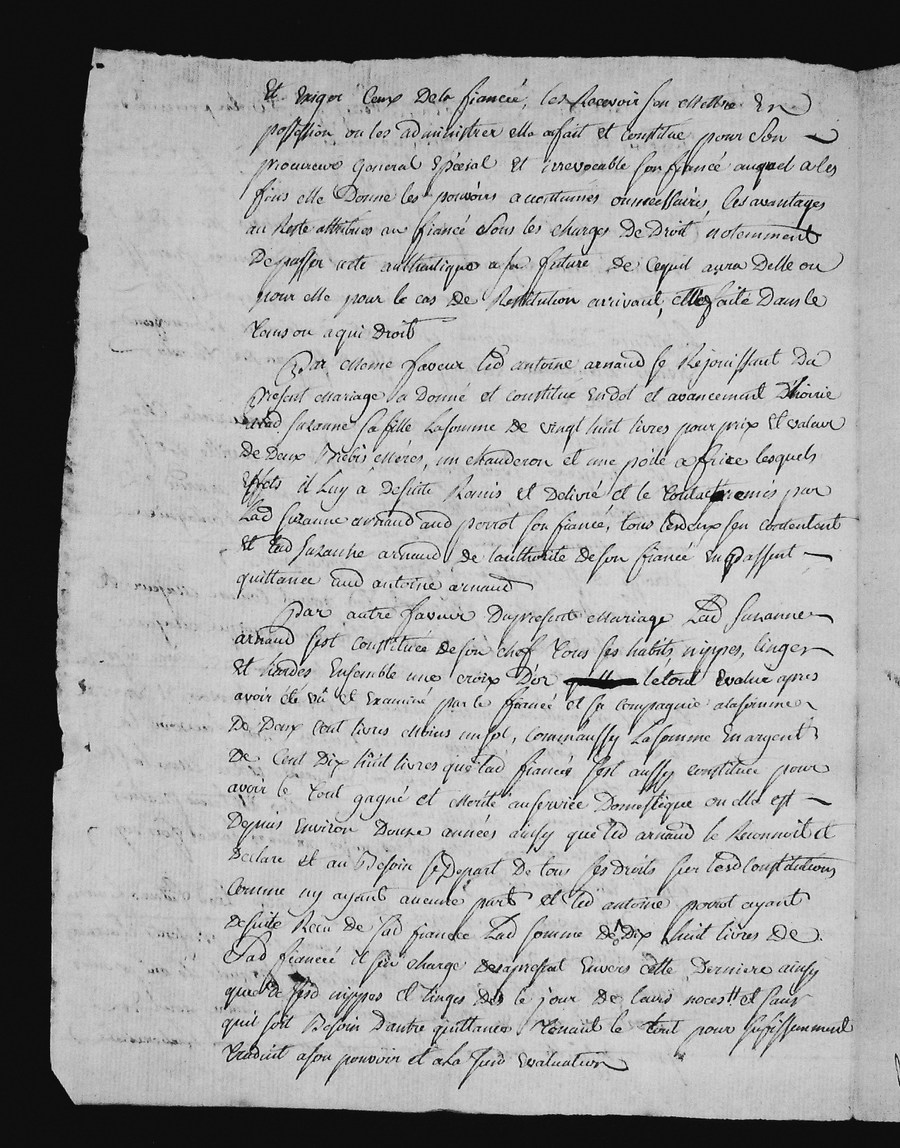 Et Exiger Ceux Dela fiancée, les Recevoir sen Mettre En
possession ou les administrer elle afait et Constitué pour Son
procureur General Spécial Et irrevocable son fiancé auquel ales
fins elle Donne les pouvoirs acoutumés ounecessaires les avantages
au Reste attribués au fiancé Sous les charges De Droit notemment
De passer acte authentique asa future De Cequil aura Delle ou
pour elle pour le cas De Restitution arrivant, Etre faite Dans le
tems ou aqui Droit
Par Meme faveur led antoine arnaud se Rejouissant Du
present Mariage a Donné et constitué Endot et avancement D'hoirie
alad Suzanne sa fille Lasomme De vingt huit livres pour prix Et valeur
de Deux Brebis Meres, un chauderon et une poële afrire lesquels
Effets il Luy à Desuite Remis et Delivré et le tout remis par
Lad Suzanne arnaud aud perrot son fiancé, tous les deux sen contentent
Et lad Suzanne arnaud de lauthorité De son fiancé En passent
quittance aud antoine arnaud
Par autre faveur Dupresent Mariage Lad Suzanne
arnaud sest constituée de son chef tous ses habits nippes, linges
Et hardes Ensemble une croix D'or letout Evalué apres
avoir été vû et Examiné par le fiancé et sa compagnie alasomme
De Deux Cent livres Moins un sol, comm'aussy Lasomme En argent
De Cent Dix huit livres que lad fiancée sest aussy constituée pour
avoir le tout gagné et Merité au service Domestique ou elle est
Depuis Environ Douze années ainsy que led arnaud le Reconnoit et
Declare et au Besoin se Depart De tous ses Droits sur lesd Constitutions
Comme ny ayant aucune part et led antoine perrot ayant
Desuite Recu de lad fiancée Lad somme de Dix huit livres De
Lad fiancée il sen charge desapresent Envers cette Derniere ainsy
que de sesd nippes et linges Dès le jour De leurs noces et sans
quil soit Besoin D'autre quittance Tenant le tout pour suffissemment
traduit ason pouvoir et ala susd Evaluation